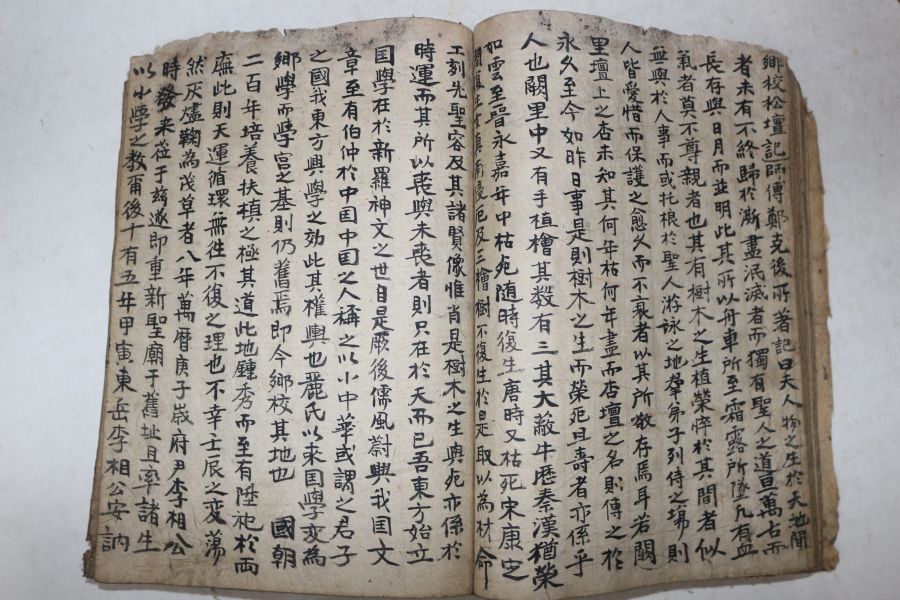 鄉校松壇記師傅鄭克後所著記曰夫人物之生於天地間
者未有不終歸於澌盡泯滅者而獨有聖人之道亘萬古而
長存與日月而並明此其所以舟車所至霜露所墜凡有血
氣者莫不尊親者也其有樹木之生植榮悴於其間者似
無與於人事而或托根於聖人游詠之地羣弟子列侍之場則
人皆愛惜而保護之愈久而不衰者以其所敬存焉耳若闕
里壇上之杏未知其何年枯何年盡而杏壇之名則傳之於
永久至今如昨日事是則樹木之生而榮死且壽者亦係乎
人也闕里中又有手植檜其數有三其大敝牛歷秦漢猶榮
如雲至晉永嘉年中枯死随時復生唐時又枯死宋康定
間復生 及三檜樹不復生於是取以為材命
工刻先聖容及其諸賢像惟肖是樹木之生與死亦係於
時運而其所以喪與未喪者則只在於天而已吾東方始立
国學在於新羅神文之世自是厥後儒風蔚興我国文
章至有伯仲於中国中国之人稱之以小中華或謂之君子
之國我東方興學之効此其權輿也麗氏以来国學变為
鄉學而學宮之基則仍舊焉即今鄉校其地也 國朝
二百年培養扶植之極其道此地鍾秀而至有陞祀於兩
廡此則天運循環無徃不復之理也不幸壬辰之変蕩
然灰燼鞠為茂草者八年萬曆庚子歲府尹李相公
時發来莅于兹遂即重新聖廟于舊址且率諸生
以小學之教甭後十有五年甲寅東岳李相公安訥